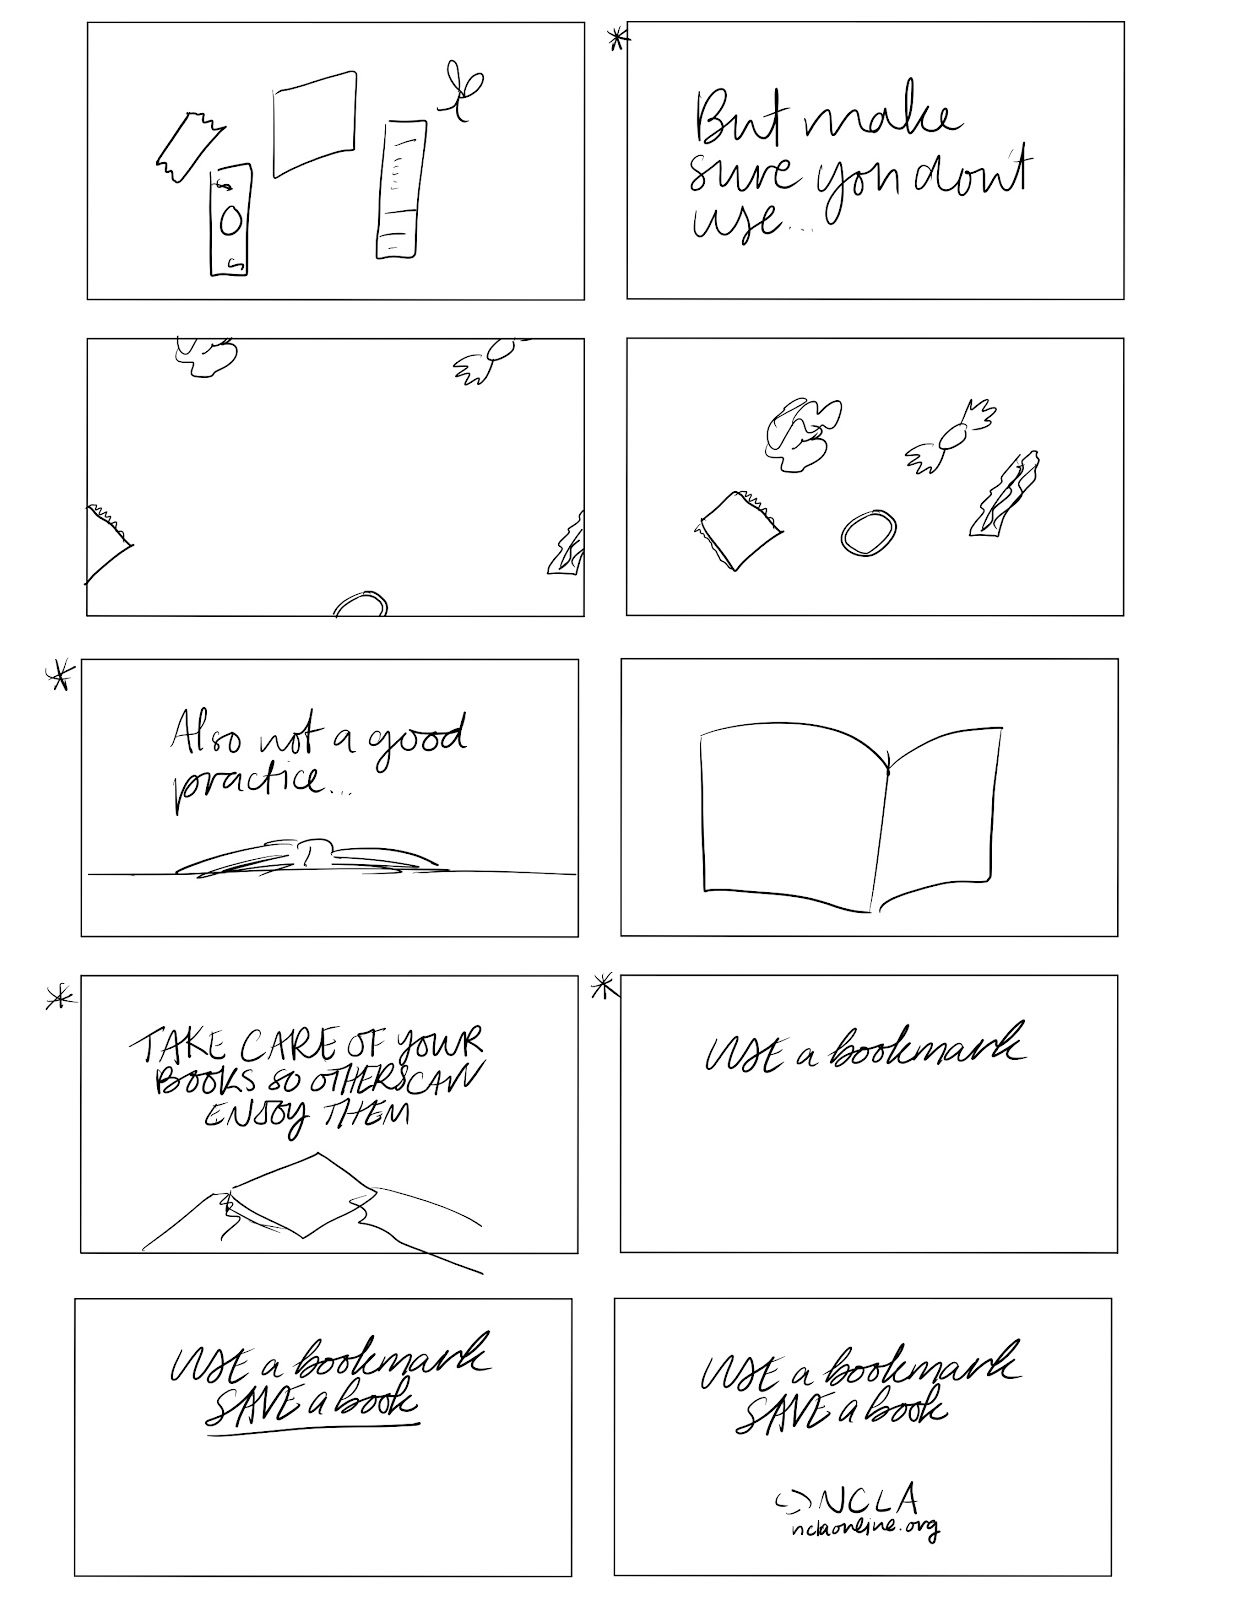 *
But make
sure you don't
use...
*
Also not a good
practice...
*
TAKE CARE OF YOUR
BOOKS SO OTHERS CAN
ENJOY THEM
*
USE a bookmark
USE a bookmark
SAVE a book
USE a bookmark
SAVE a book
NCLA
nclaonline.org